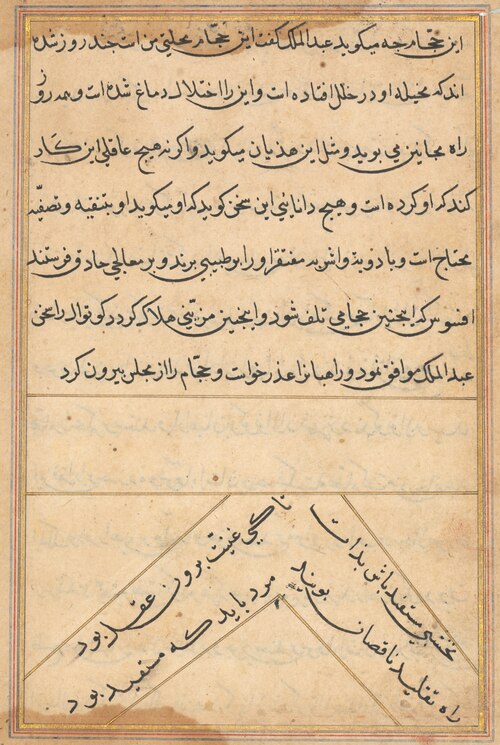 این حجّام چه میکوید عبدالملک کفت این حجّام محلتی من است چند روز شده
اند که مخیله او در خلل افتاده است و این را اختلال دماغ شده است و همه روز
راه مجانین می پوید و مثل این هذیان میکوید و اکر نه هیچ عاقلی این کار
کند که او کرده است و هیچ دانایی این سخن کوید که او میکوید او بتنقیه و تصفیه
محتاج است و بادویه و اشربه مفتقر او را بر طبیبی برند و بر معالجی حاذق فرستند
افسوس که اینچنین حجامی تلف شود و اینچنین مزینی هلاک کردد کوتوال را سخن
عبدالملک موافق نمود و راهبانرا عذر خواست و حجّام را از مجلس بیرون کرد
نخشبی مستفید باش بذات
تا کی غنیت برون عقار بود
راه تقلید ناقصان پویند
مرد باید که مستفید بود